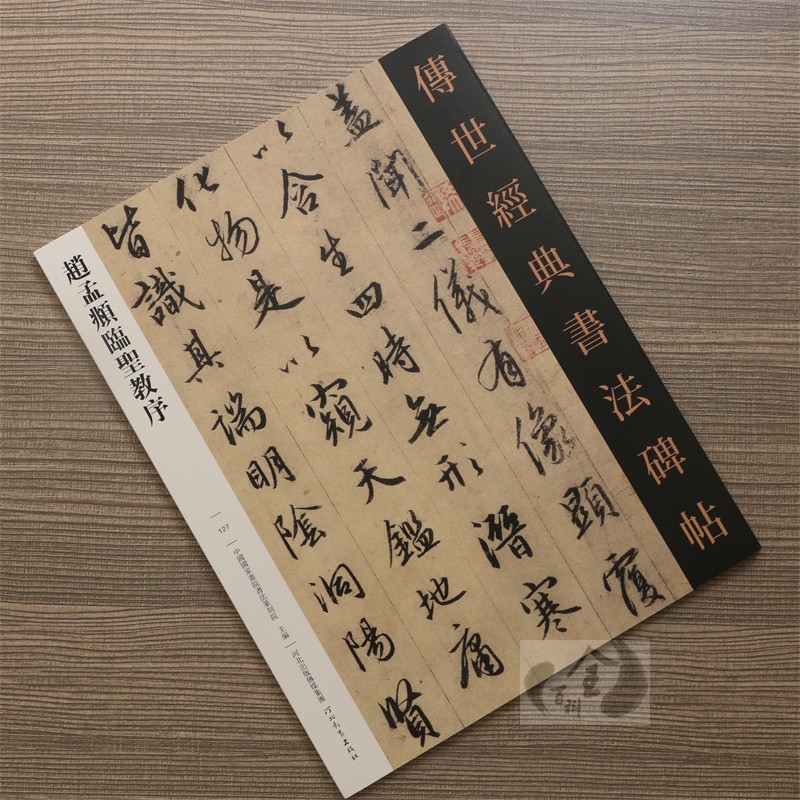 傳世經典書法碑帖
盖聞二儀有像顯覆
以含生四時無形潛寒
化物是以窺天鑑地庸
皆識其端明陰洞陽賢
趙孟頫臨聖教序
127
中國國家畫院書法篆刻院 主編
河北出版傳媒集團 河北教育出版社
全
百科